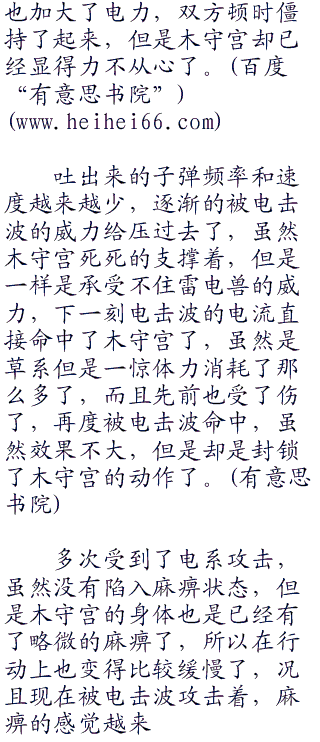 也加大了电力，双方顿时僵
持了起来，但是木守宫却已
经显得力不从心了。(百度
“有意思书院”)
(www.heihei66.com)
吐出来的子弹频率和速
度越来越少，逐渐的被电击
波的威力给压过去了，虽然
木守宫死死的支撑着，但是
一样是承受不住雷电兽的威
力，下一刻电击波的电流直
接命中了木守宫了，虽然是
草系但是一惊体力消耗了那
么多了，而且先前也受了伤
了，再度被电击波命中，虽
然效果不大，但是却是封锁
了木守宫的动作了。(有意思
书院)
多次受到了电系攻击，
虽然没有陷入麻痹状态，但
是木守宫的身体也是已经有
了略微的麻痹了，所以在行
动上也变得比较缓慢了，况
且现在被电击波攻击着，麻
痹的感觉越来